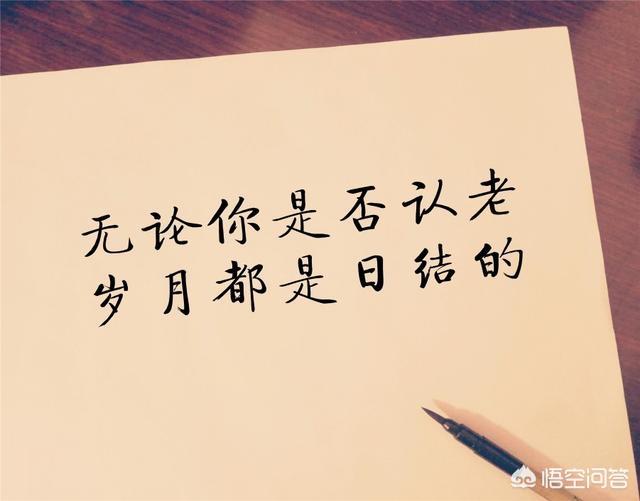 无论你是否认老
岁月都是日结的
悟空问答